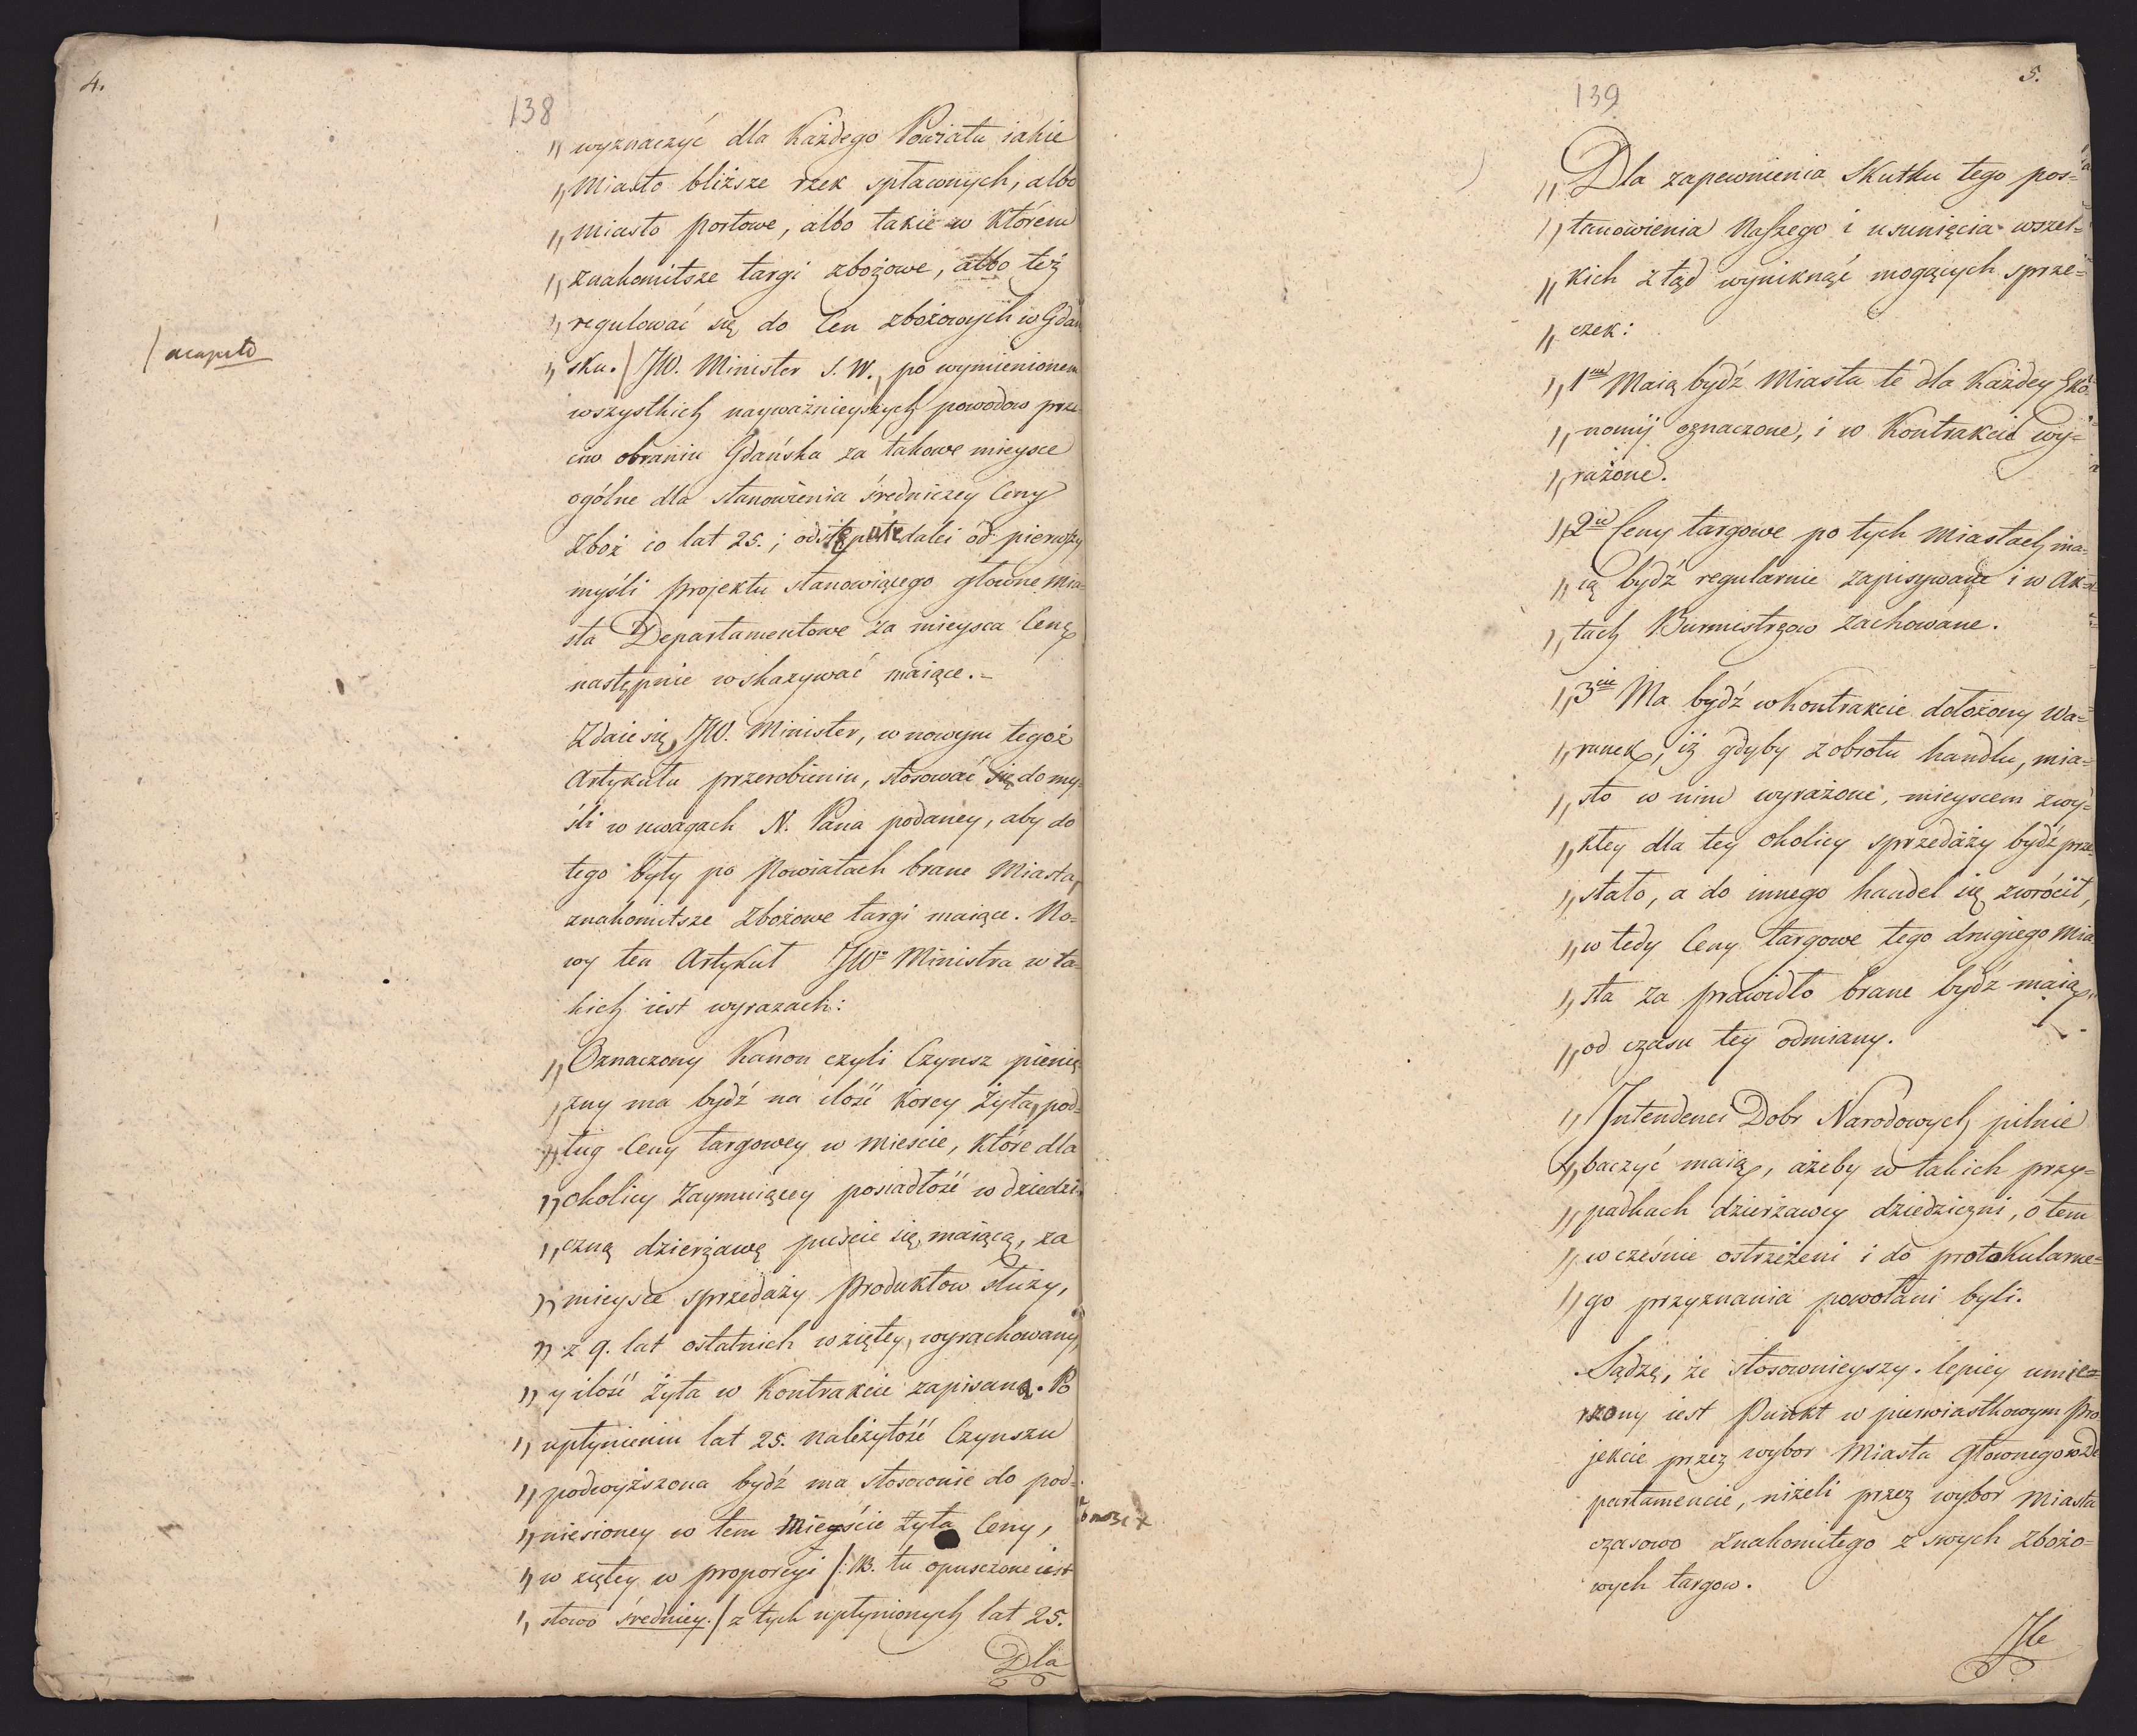 4.
138
„ wyznaczyć dla Każdego Powiatu iakie
„ Miasto bliższe rzek spławnych, albo
„ miasto portowe, albo takie w którem
„ znakomitsze targi zbożowe, albo też
„ regulować się do Cen zbożowych w Gdań
„ sku. / JW. Minister S. W., po wymienionem
/ acapito
wszystkich nayważnieyszych powodow prze-
ciw obraniu Gdańska za takowe mieysce
ogólne dla stanowienia średniczey Ceny
Zboż co lat 25.; odstępuie daléi od pierwszy
myśli projektu stanowiącego główne Mia-
sta Departamentowe za mieysca Cenę
następnie wskazywać maiące.-
Zdaie się, JW. Minister, w nowym tegoż
Artykułu przerobieniu, stosować się do my-
śli w uwagach N. Pana podaney, aby do
tego były po Powiatach brane Miasta,
znakomitsze Zbożowe targi maiące. No-
wy ten Artykuł JWo Ministra w ta-
kich iest wyrazach:
„ Oznaczony Kanon czyli Czynsz pienię-
„ zny ma bydź na ilość Korcy Żyta, pod-
„ ług Ceny targowey w mieście, które dla
„ okolicy Zaymuiącey posiadłość w dziedzi-
„ czną dzierżawę puście się maiącą, za
„ mieysce sprzedaży Produktow służy,
„ z 9. lat ostatnich wziętey, wyrachowany,
„ y ilość Żyta w Kontrakcie zapisaną. Po
„ upłynieniu lat 25. należytość Czynszu
„ podwyższona bydź ma stosownie do pod-
„ niesioney w tem Mieyście Żyta Ceny,
„ w ziętey w proporcyi /: NB. tu opuszczone iest
„ słowo średniey :/ z tych upłynionych lat 25.
Dla
5.
139
„ Dla zapewnienia Skutku tego pos=
„ tanowienia Naszego i usunięcia wszel=
„ kich ztąd wyniknąć mogących sprze=
„ czek:
„ 1mo Maią bydź Miasta te dla Każdey Eko-
„ nomij oznaczone, i w Kontrakcie wy=
„ rażone.
„ 2do Ceny targowe po tych Miastach ma-
„ ią bydź regularnie zapisywane i w Ak=
„ tach Burmistrzow zachowane.
„ 3cie Ma bydź w Kontrakcie dołożony Wa=
„ runek, iż gdyby z obrotu handlu, mia=
„ sto w nim wyrażone, mieyscem zwy=
„ kłey dla tey okolicy sprzedaży bydź prze-
„ stało, a do innego handel się zwrócił,
„ w tedy Ceny targowe tego drugiego Mia
„ sta za prawidło brane bydź maią,
„ od czasu tey odmiany.
„ Intendenci Dobr Narodowych pilnie
„ baczyć maią, ażeby w takich przy=
„ padkach dzierżawcy dziedziczni, o tem
„ w cześnie ostrzeżeni i do protokularne=
„ go przyznania powołani byli.
Sądzę, że stosownieyszy. lepiey umie=
rzony iest Punkt w pierwiastkowym Pro
jekcie przez wybor Miasta Głownego w De
partamencie, niżeli przez wybor Miasta
czasowo Znakomitego z swych Zbożo=
wych targow.
Ile